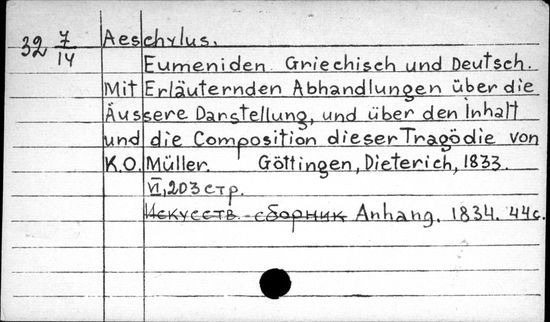 32 7/14 Aeschylus.
Eumeniden. Griechisch und Deutsch.
Mit Erläuternden Abhandlungen über die
Äussere Darstellung, und über den Inhalt
und die Composition dieser Tragödie von
K.O. Müller. Göttingen, Dieterich, 1833.
VI, 203 стр.
Искусств. сборник Anhang. 1834. 44 с.